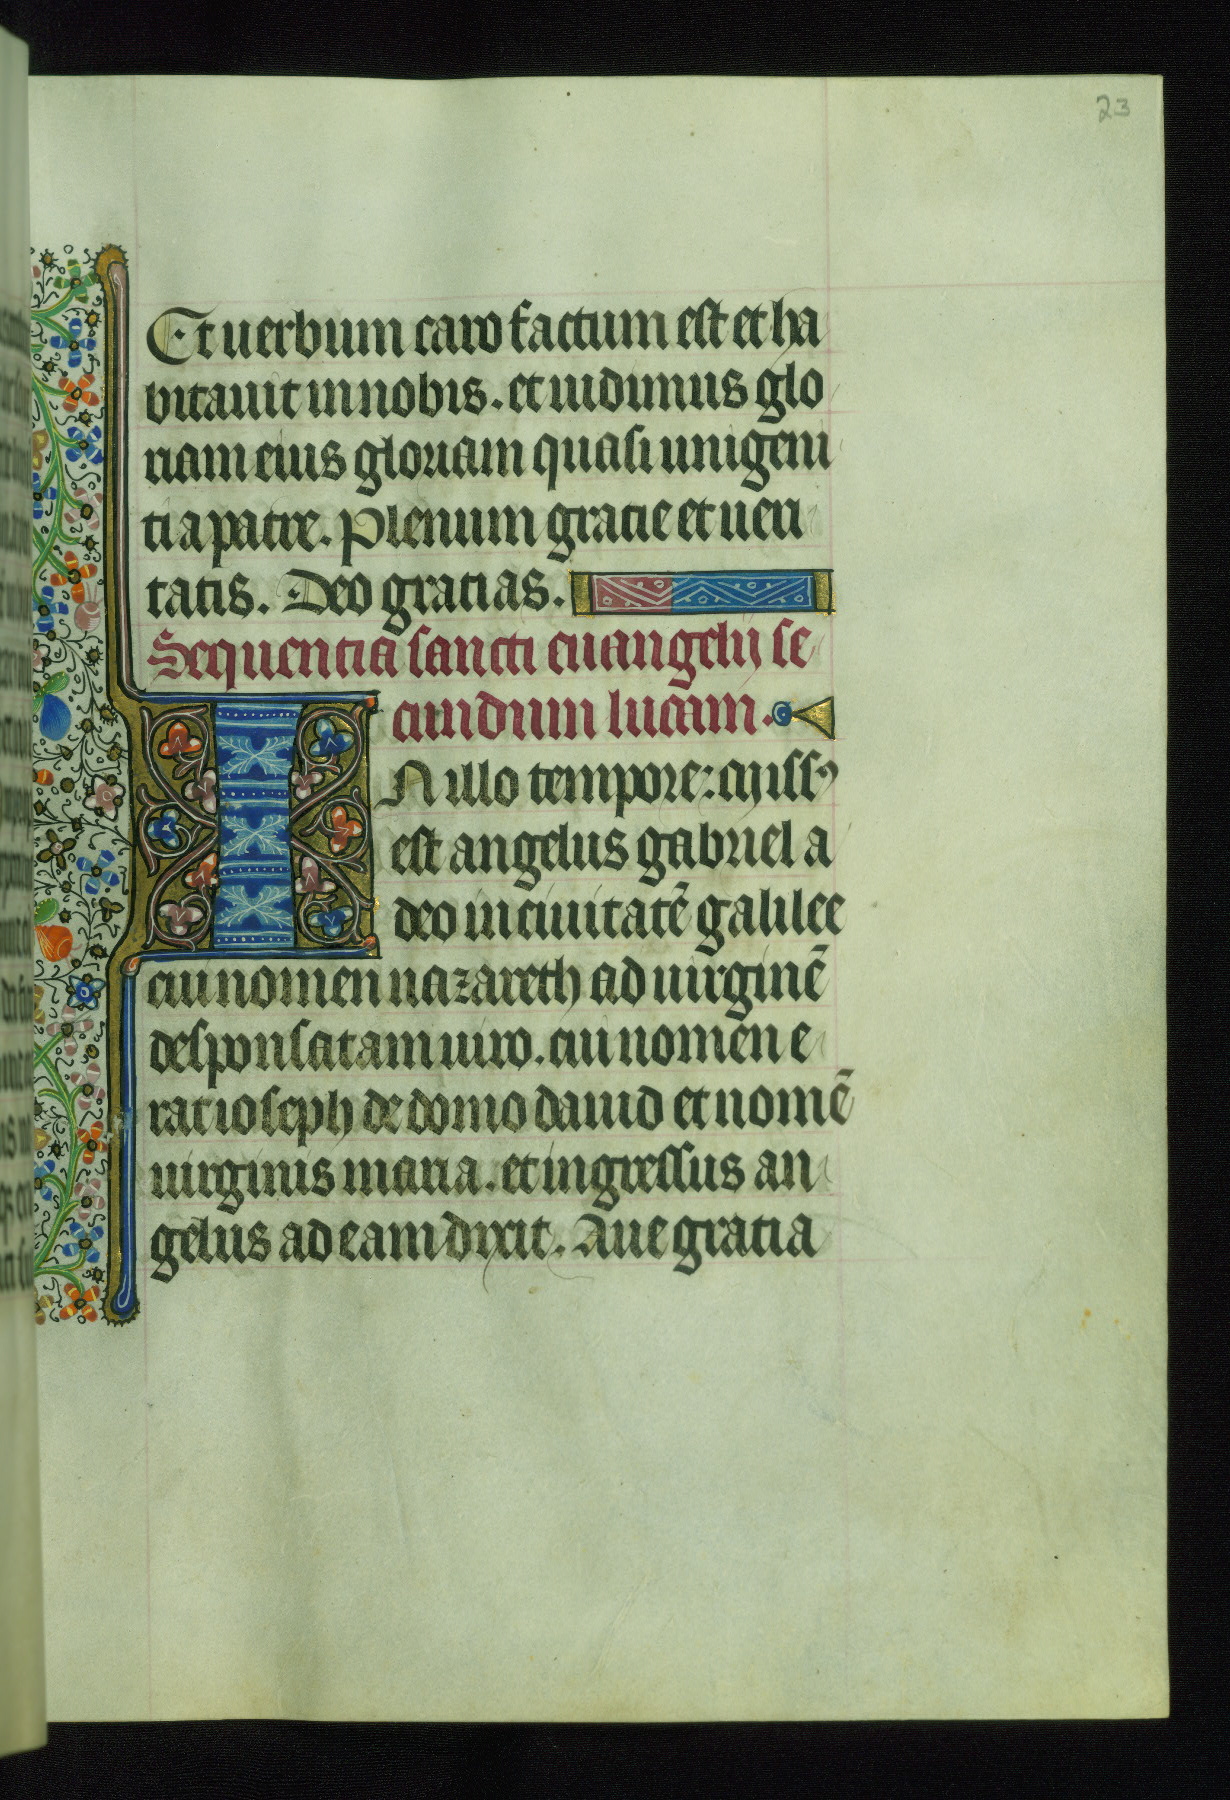 23
Et uerbum caro factum est et ha
bitauit in nobis. et uidimus glo
riam eius gloriam quasi unigeni
ti a patre. Plenum gratie et ueri
tatis. Deo gratias.
Sequentia sancti euangelij se
cundum lucam.
IN illo tempore: missꝰ
est angelus gabriel a
deo in ciuitatē galilee
cui nomen nazareth ad uirginē
desponsatam uiro. cui nomen e
rat ioseph de domo dauid et nomē
uirginis maria. et ingressus an
gelus ad eam dixit. Aue gratia